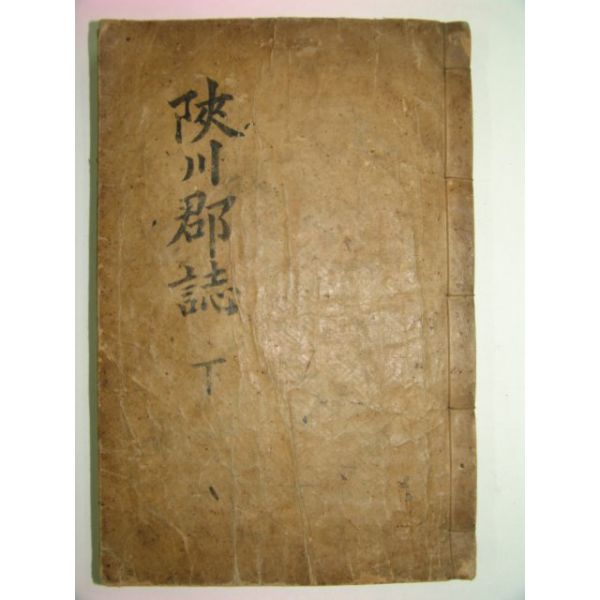 陜川郡誌 丁